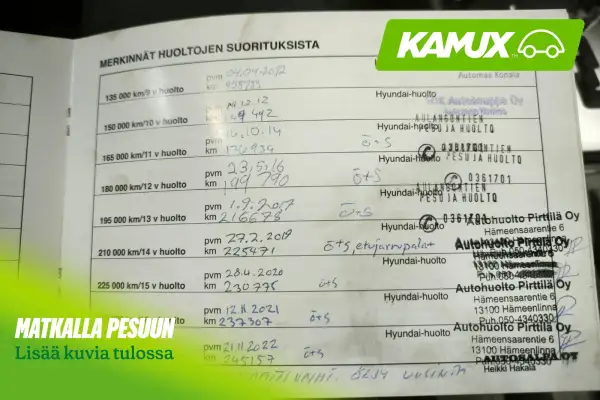 KAMUX
MERKINNÄT HUOLTOJEN SUORITUKSISTA
pvm 04.04.2012
km
Automaa Konala
135 000 km/9 v huolto
Hyundai-huolto
12.12
150 000 km/10 v huolto
Hyundai-huolto
AULANGONTIEN
PESU JA HUOLTO
10.14
km
165 000 km/11 v huolto
ö-S
0361701
Hyundai-huolto
PESU JA HUOLTO
pvm 23.5.16
km 199 790
ö+S
0361701
180 000 km/12 v huolto
Hyundai-huolto
AULANGONTIEN
PESU JA HUOLTO
pvm 1.9.2017
km 216678
ö-S
0361701
195 000 km/13 v huolto
Hyundai-huolto
Autohuolto Pirttilä Oy
Hämeensaarentie 6
pvm 27.2.2019
km 225471
ö+S, etujarrupalat
210 000 km/14 v huolto
Hyundai-huolto
Autohuolto Pirttilä Oy
13100 Hämeenlinna
pvm 28.4.2020
km 230775
ö+S
225 000 km/15 v huolto
Hyundai-huolto
Autohuolto Pirttilä Oy
Hämeensaarentie 6
13100 Hämeenlinna
Puh.050-4340330
pvm 12.11.2021
km 237307
ö+S
v huolto
Hyundai-huolto
Autohuolto Pirttilä Oy
Hämeensaarentie 6
13100 Hämeenlinna
Puh.050-4340330
pvm 21.11.2022
km 245157
ö+S
AUTOSALPA OY
Heikki Hakala
MATKALLA PESUUN
Lisää kuvia tulossa